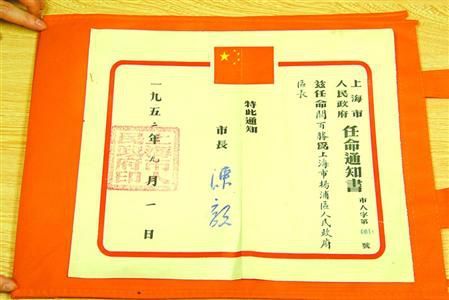 上海市
人民政府
任命通知書
市人字第 號
兹任命關百勝為上海市楊浦區人民政府
區長
特此通知
市長 陳毅
一九五二年九月一日